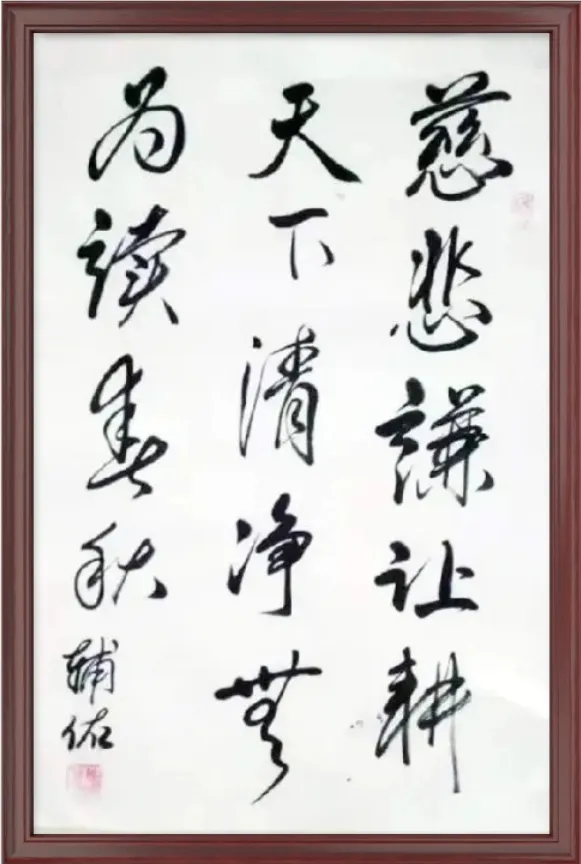 慈悲謙让耕
天下清净無
为读春秋
辅佑